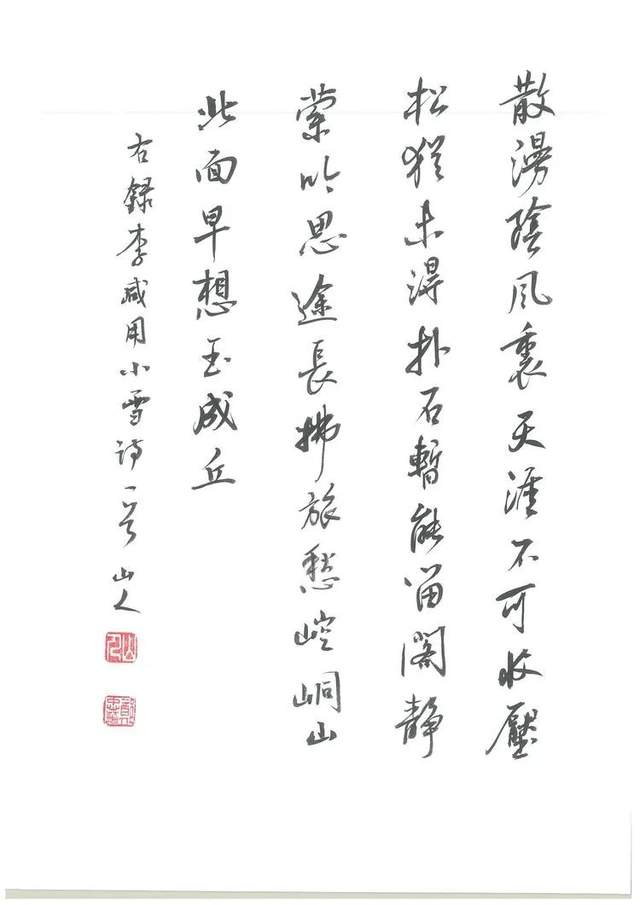 散漫陰風裏天涯不可收壓
松猶未得扑石暫能留閣靜
縈吟思途長拂旅愁崆峒山
北面早想玉成丘
右録李咸用小雪詩一山人